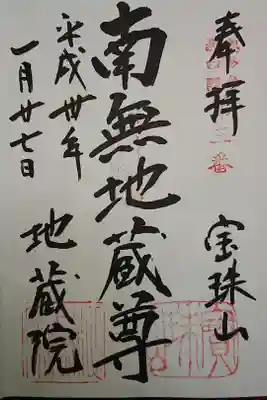 奉拝
宝珠山
南無地蔵尊
平成卅年
一月廿七日
地蔵院